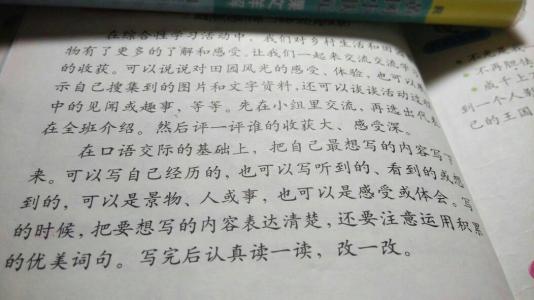 在综合性学习活动中，我们对乡村生活和田园
物有了更多的了解和感受。让我们一起来交流交流学
的收获。可以说说对田园风光的感受、体验，也可以
示自己搜集到的图片和文字资料，还可以谈谈活动过程
中的见闻或趣事，等等。先在小组里交流，再选出代表
在全班介绍。然后评一评谁的收获大、感受深。
在口语交际的基础上，把自己最想写的内容写下
来。可以写自己经历的，也可以写听到的、看到的或想
到的，可以是景物、人或事，也可以是感受或体会。写
的时候，把要想写的内容表达清楚，还要注意运用积累
的优美词句。写完后认真读一读，改一改。
不再胆怯
成千上万
到一个人
己的王国